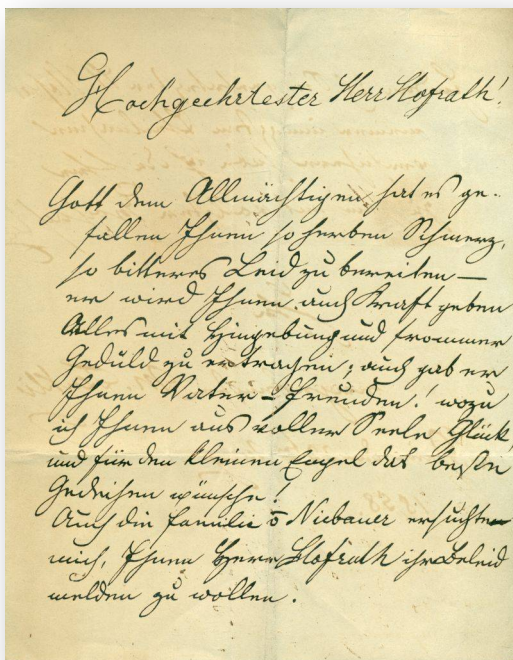 Hochgeehrtester Herr Hofrath!
Gott dem Allmächtigen hat es ge-
fallen Ihnen so herben Schmerz,
so bitteres Leid zu bereiten —
er wird Ihnen auch Kraft geben
Alles mit Hingebung und frommer
Geduld zu ertragen; auch gab er
Ihnen Vater-Freuden! wozu
ich Ihnen aus voller Seele Glück,
und für den kleinen Engel das beste
Gedeihen wünsche!
Auch die Familie v Niebauer ersuchte
mich, Ihnen Herr Hofrath ihr Beleid
melden zu wollen.